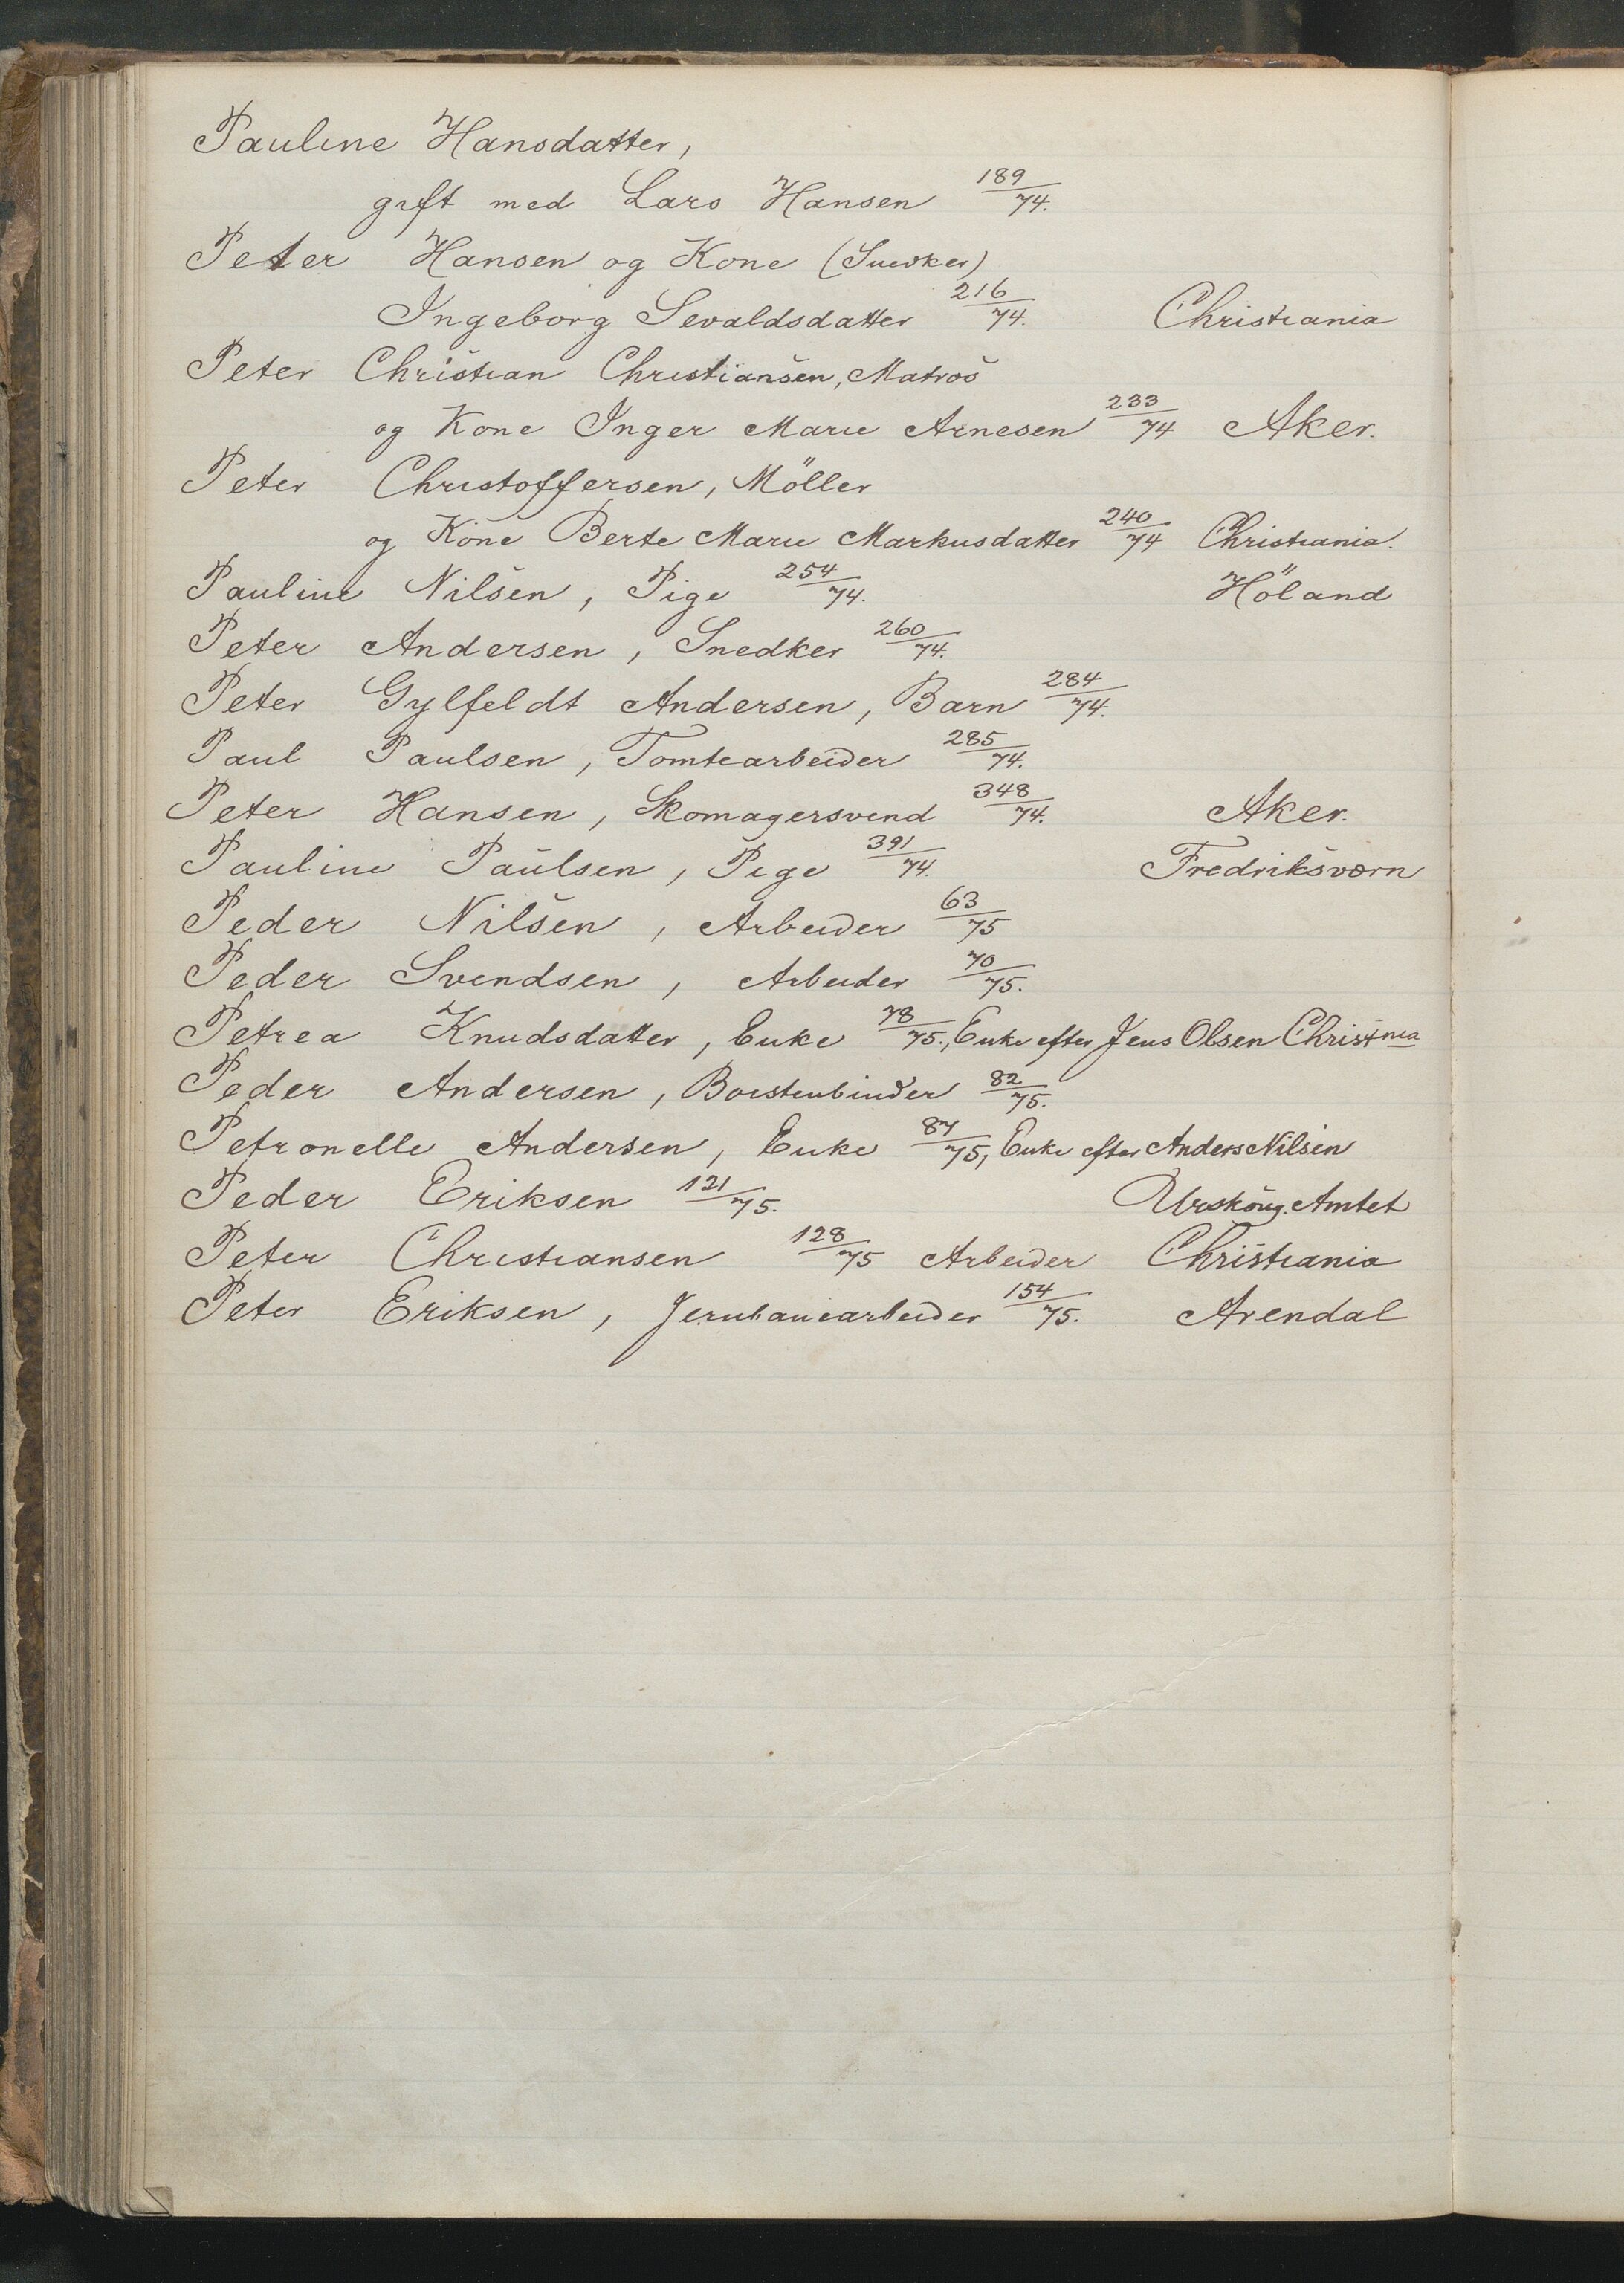 Pauline Hansdatter,
gift med Lars Hansen 189/74.
Peter Hansen og Kone (Snedker)
Ingeborg Sevaldsdatter 216/74. Christiania
Peter Christian Christiansen, Matros
og Kone Inger Marie Arnesen 233/74 Aker.
Peter Christoffersen, Möller
og Kone Berte Marie Markusdatter 240/74 Christiania.
Pauline Nilsen, Pige 254/74. Höland
Peter Andersen, Snedker 260/74.
Peter Gylfeldt Andersen, Barn 284/74.
Paul Paulsen, Tomtearbeider 285/74.
Peter Hansen, Skomagersvend 348/74. Aker.
Pauline Paulsen, Pige 391/74. Fredriksværn
Peder Nilsen, Arbeider 63/75
Peder Svendsen, Arbeider 70/75.
Petrea Knudsdatter, Enke 78/75., Enke efter Jens Olsen Christnia
Peder Andersen, Borstenbinder 82/75.
Petronelle Andersen, Enke 87/75, Enke efter Anders Nilsen
Peder Eriksen 121/75. Urskoug. Amtet
Peter Christiansen 128/75 Arbeider Christiania
Peter Eriksen, Jernbanearbeider 154/75. Arendal